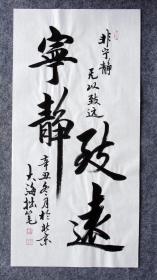 非宁静
无以致远
寧静
致遠
辛丑冬月於北京
大海拙笔